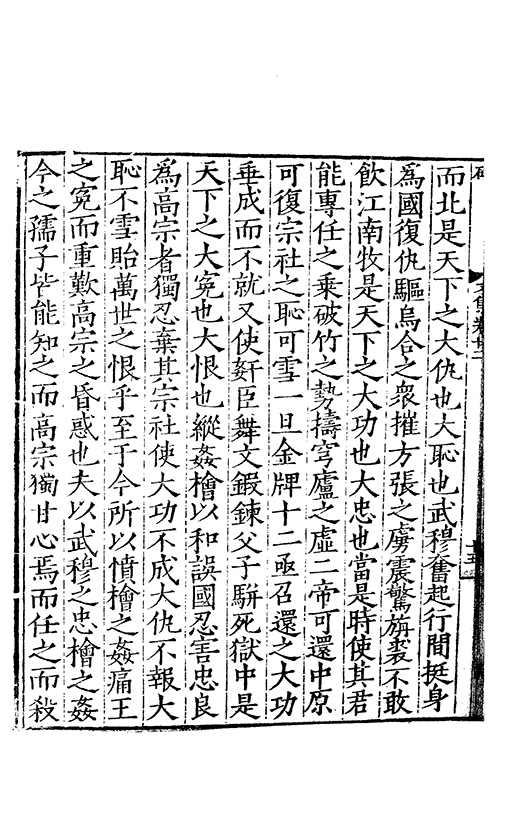 而北是天下之大仇也大恥也武穆奮起行間挺身
爲國復仇驅烏合之衆摧方張之虜震驚旃裘不敢
飲江南牧是天下之大功也大忠也當是時使其君
能專任之乘破竹之勢擣穹廬之虛二帝可還中原
可復宗社之恥可雪一旦金牌十二亟召還之大功
垂成而不就又使奸臣舞文鍛鍊父子駢死獄中是
天下之大冤也大恨也縱姦檜以和誤國忍害忠良
爲高宗者獨忍棄其宗社使大功不成大仇不報大
恥不雪貽萬世之恨乎至于今所以憤檜之姦痛王
之冤而重歎高宗之昏惑也夫以武穆之忠檜之姦
今之孺子皆能知之而高宗獨甘心焉而任之而殺